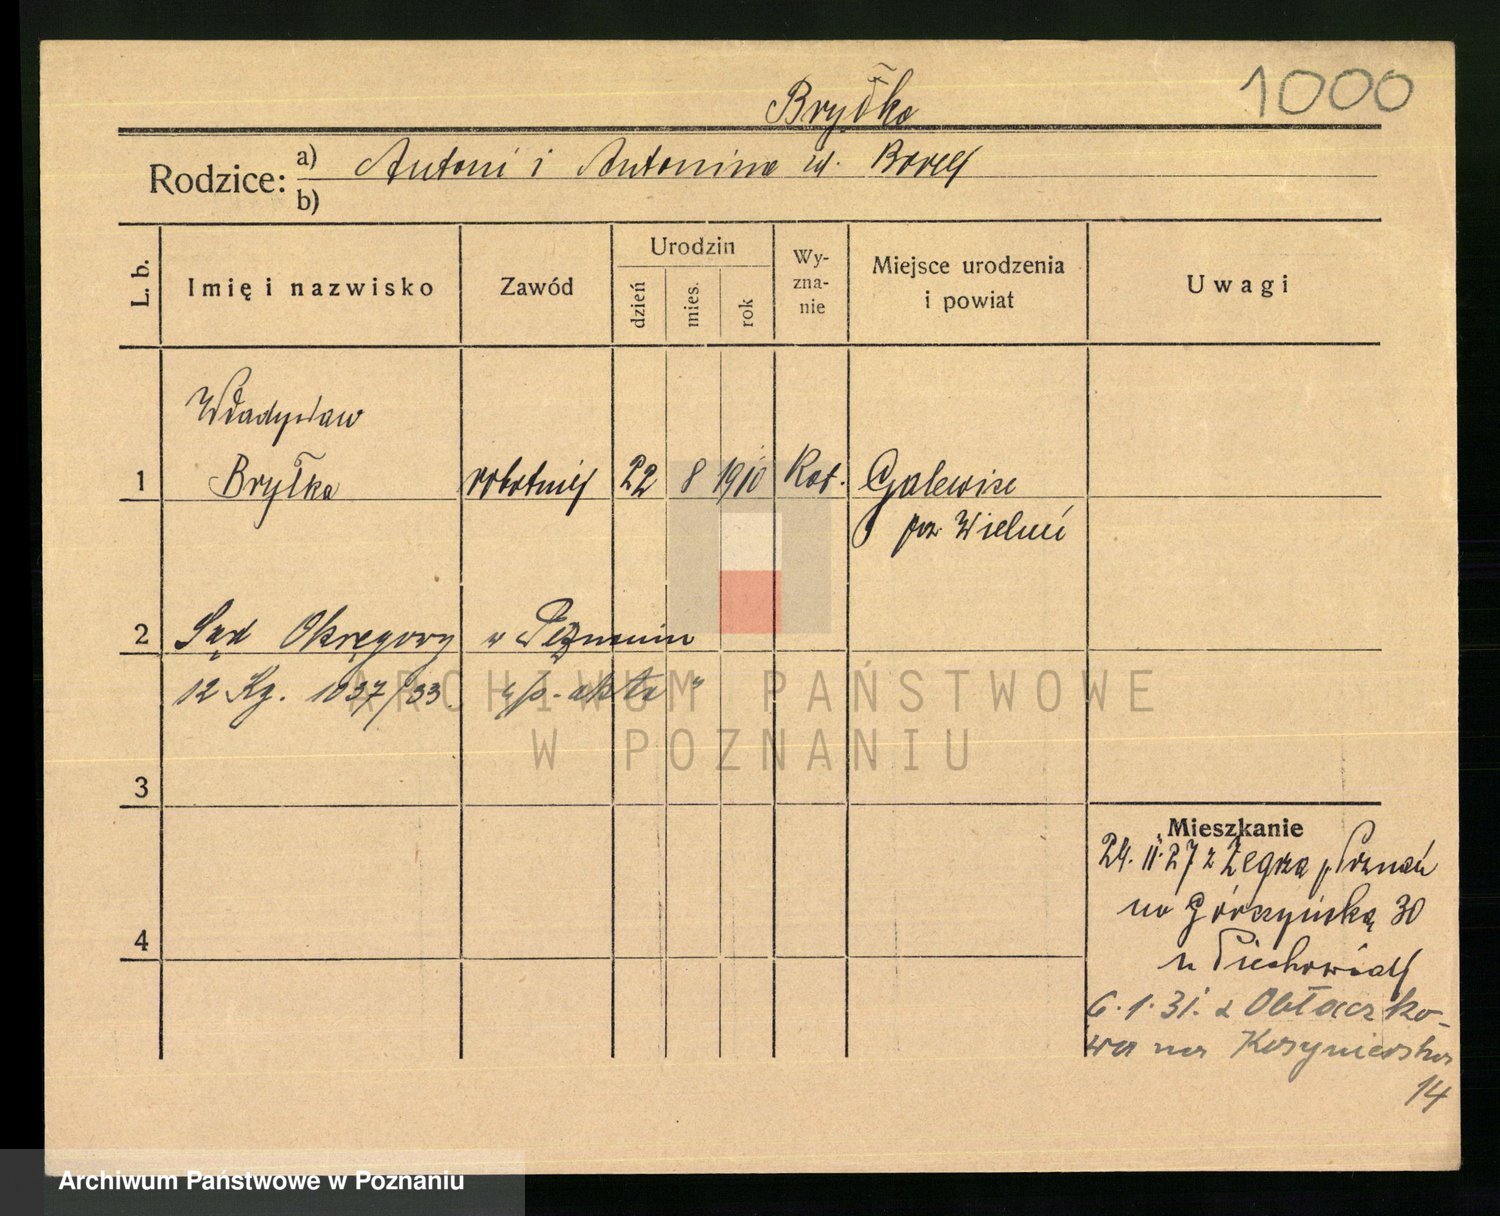 1000
Bryłka
Rodzice: a) Antoni i Antonina ur. Borek
b)
L. b. Imię i nazwisko Zawód Urodzin dzień mies. rok Wyznanie Miejsce urodzenia i powiat Uwagi
Władysław
1 Bryłka robotnik 22 8 1910 Kat. Galewice
pow. Wieluń
2 Sąd Okręgowy w Poznaniu
12 Kg. 1037/33
3
ARCHIWUM PAŃSTWOWE
W POZNANIU
Mieszkanie
24. II. 27 z Żegrza p. Poznań
na Górczyńską 30
u Piechowiak
4
6. 1. 31. z Obłaczko-
wa na Kosynierska
14
Archiwum Państwowe w Poznaniu